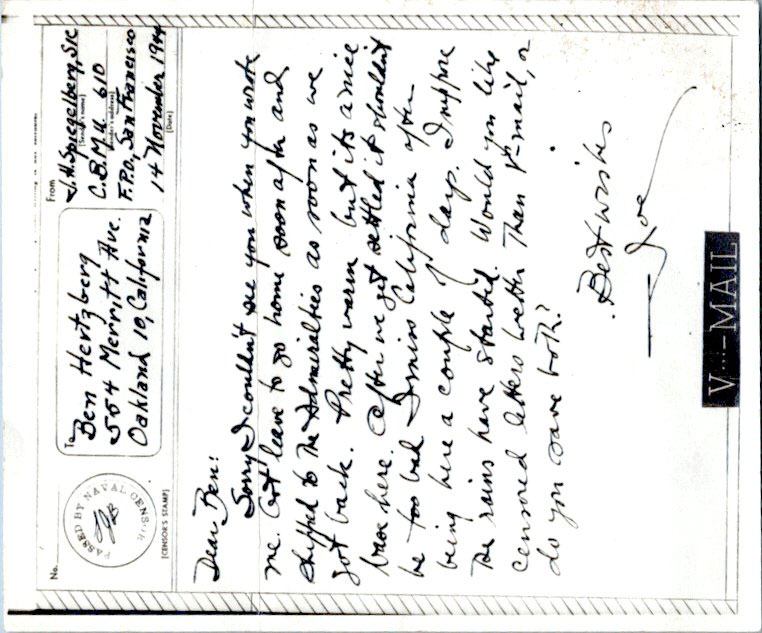 No.
PASSED BY NAVAL CENSOR
(CENSOR'S STAMP)
To
Ben Hertzberg
554 Merritt Ave.
Oakland 10, California
From
J.H. Spiegelberg, S1c
(Sender's name)
C.B.M.U. 610
(Sender's address)
F.P.O., San Francisco
14 November 1944
(Date)
Dear Ben:
Sorry I couldn't see you when you wrote
me. Got leave to go home soon after and
shipped to the Admiralties as soon as we
got back. Pretty warm but it's a nice
base here. After we get settled it shouldn't
be too bad. I miss California after
being here a couple of days. I suppose
the rains have started. Would you like
censored letters better than V-mail, or
do you save both?
Best wishes
Joe
V···—MAIL